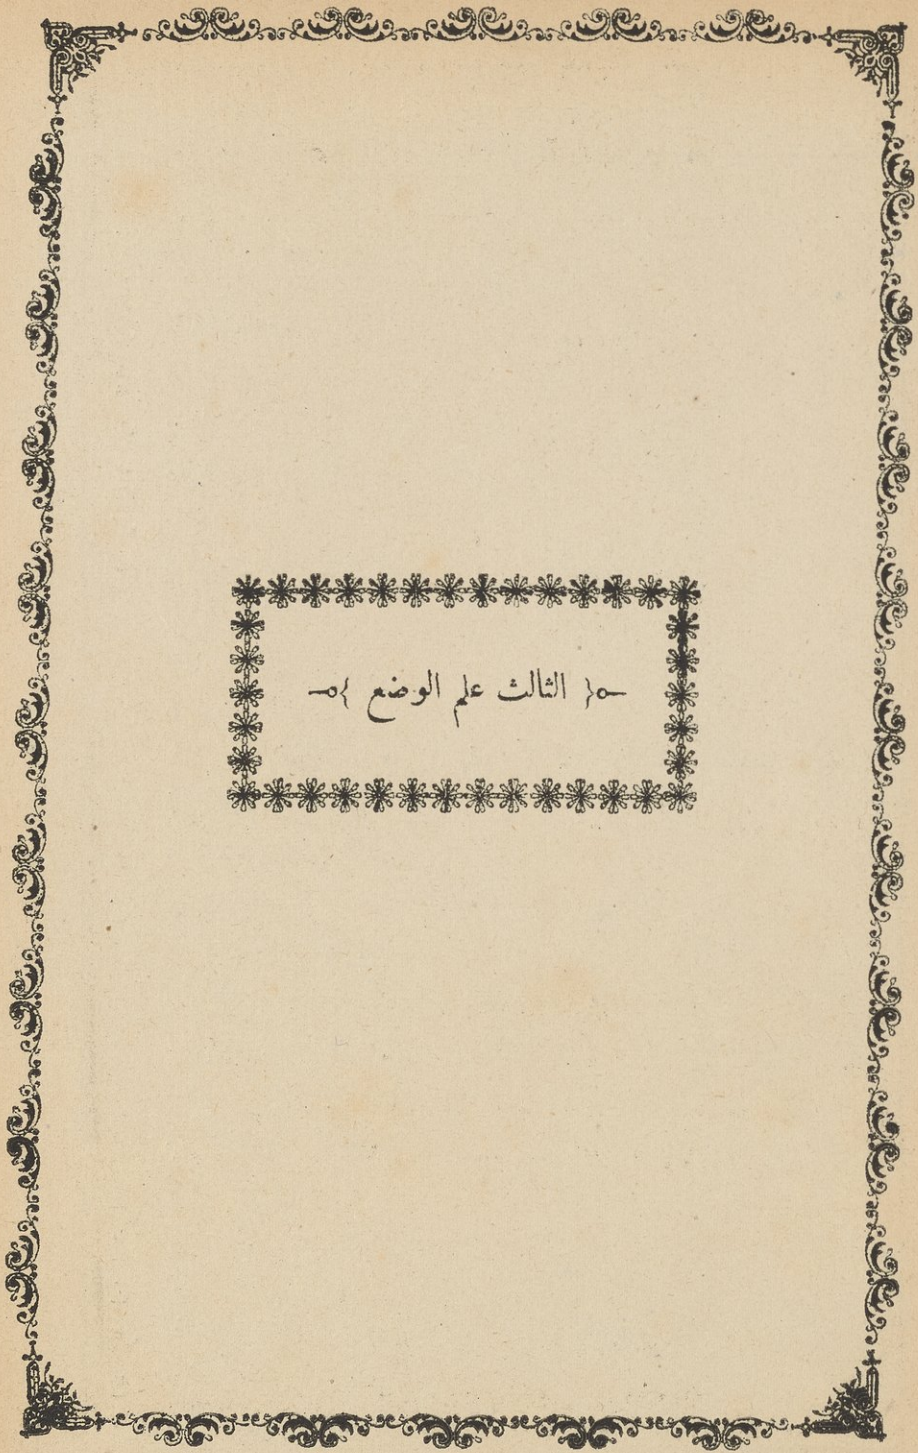 ﴿ الثالث علم الوضع ﴾